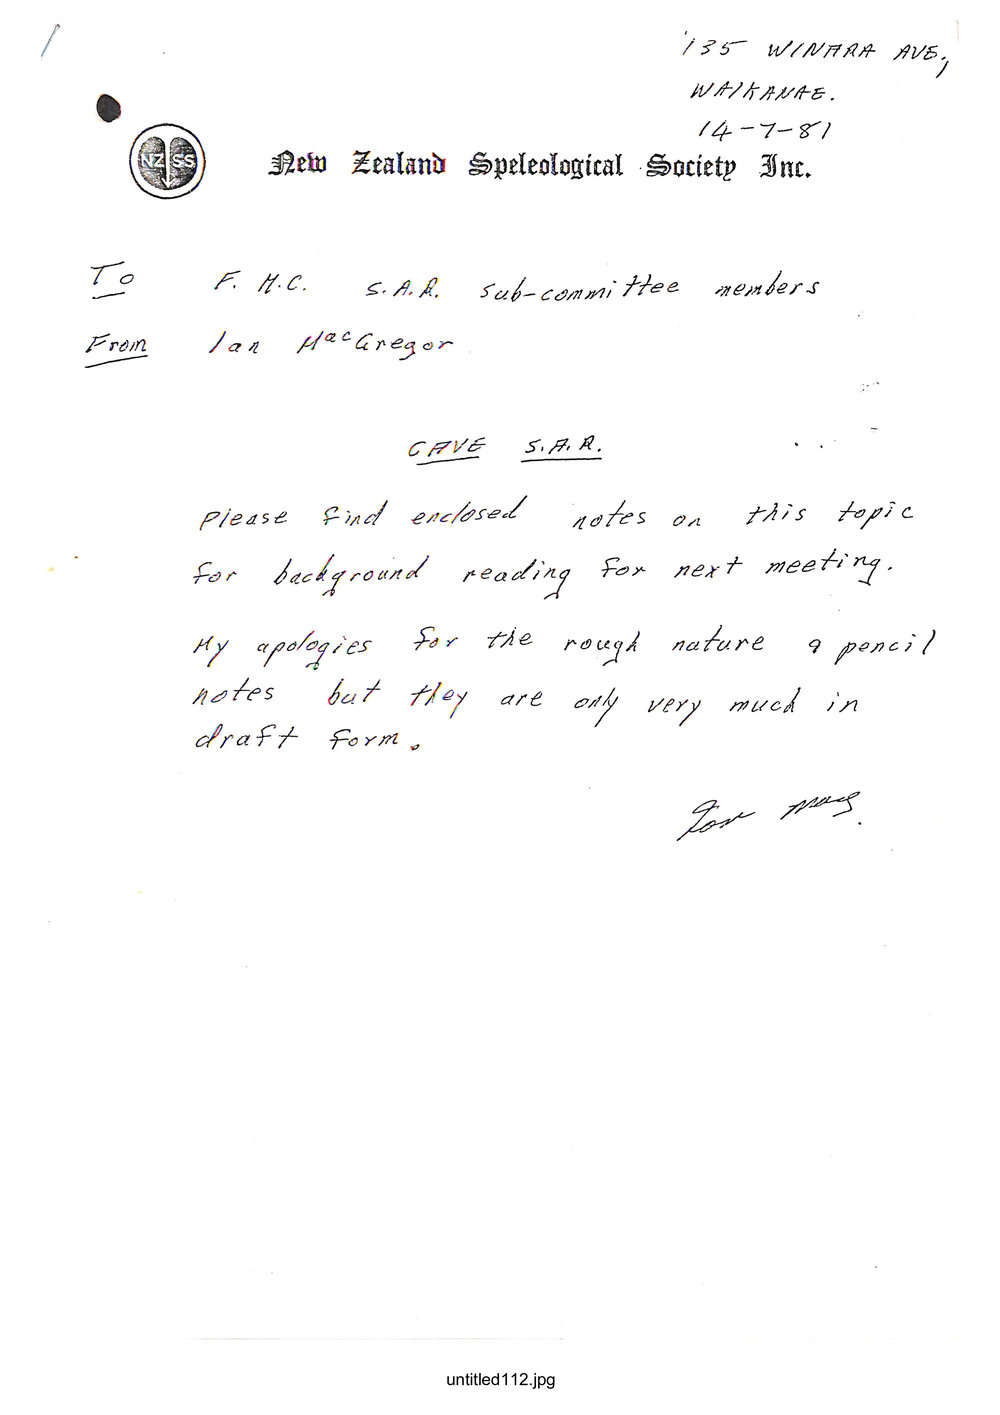 135 WINARA AVE,
WAIKANAE.
14-7-81
NZ SS
New Zealand Speleological Society Inc.
To F.M.C. S.A.R. sub-committee members
From Ian MacGregor
CAVE S.A.R.
Please find enclosed notes on this topic
for background reading for next meeting.
My apologies for the rough nature & pencil
notes but they are only very much in
draft form.
untitled112.jpg